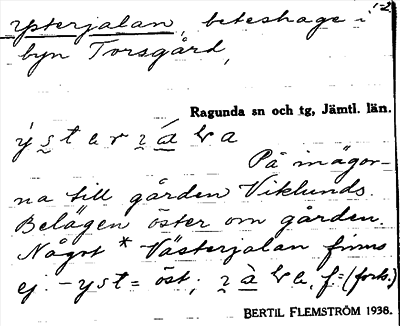 Ysterjalan, beteshage i
12
byn Torsgård,
Ragunda sn och tg, Jämtl. län.
På inägor-
na till gården Viklunds.
Belägen öster om gården.
Något * Västerjalan finns
ej. - yst = öst; f. = (forts.)
BERTIL FLEMSTRÖM 1938.